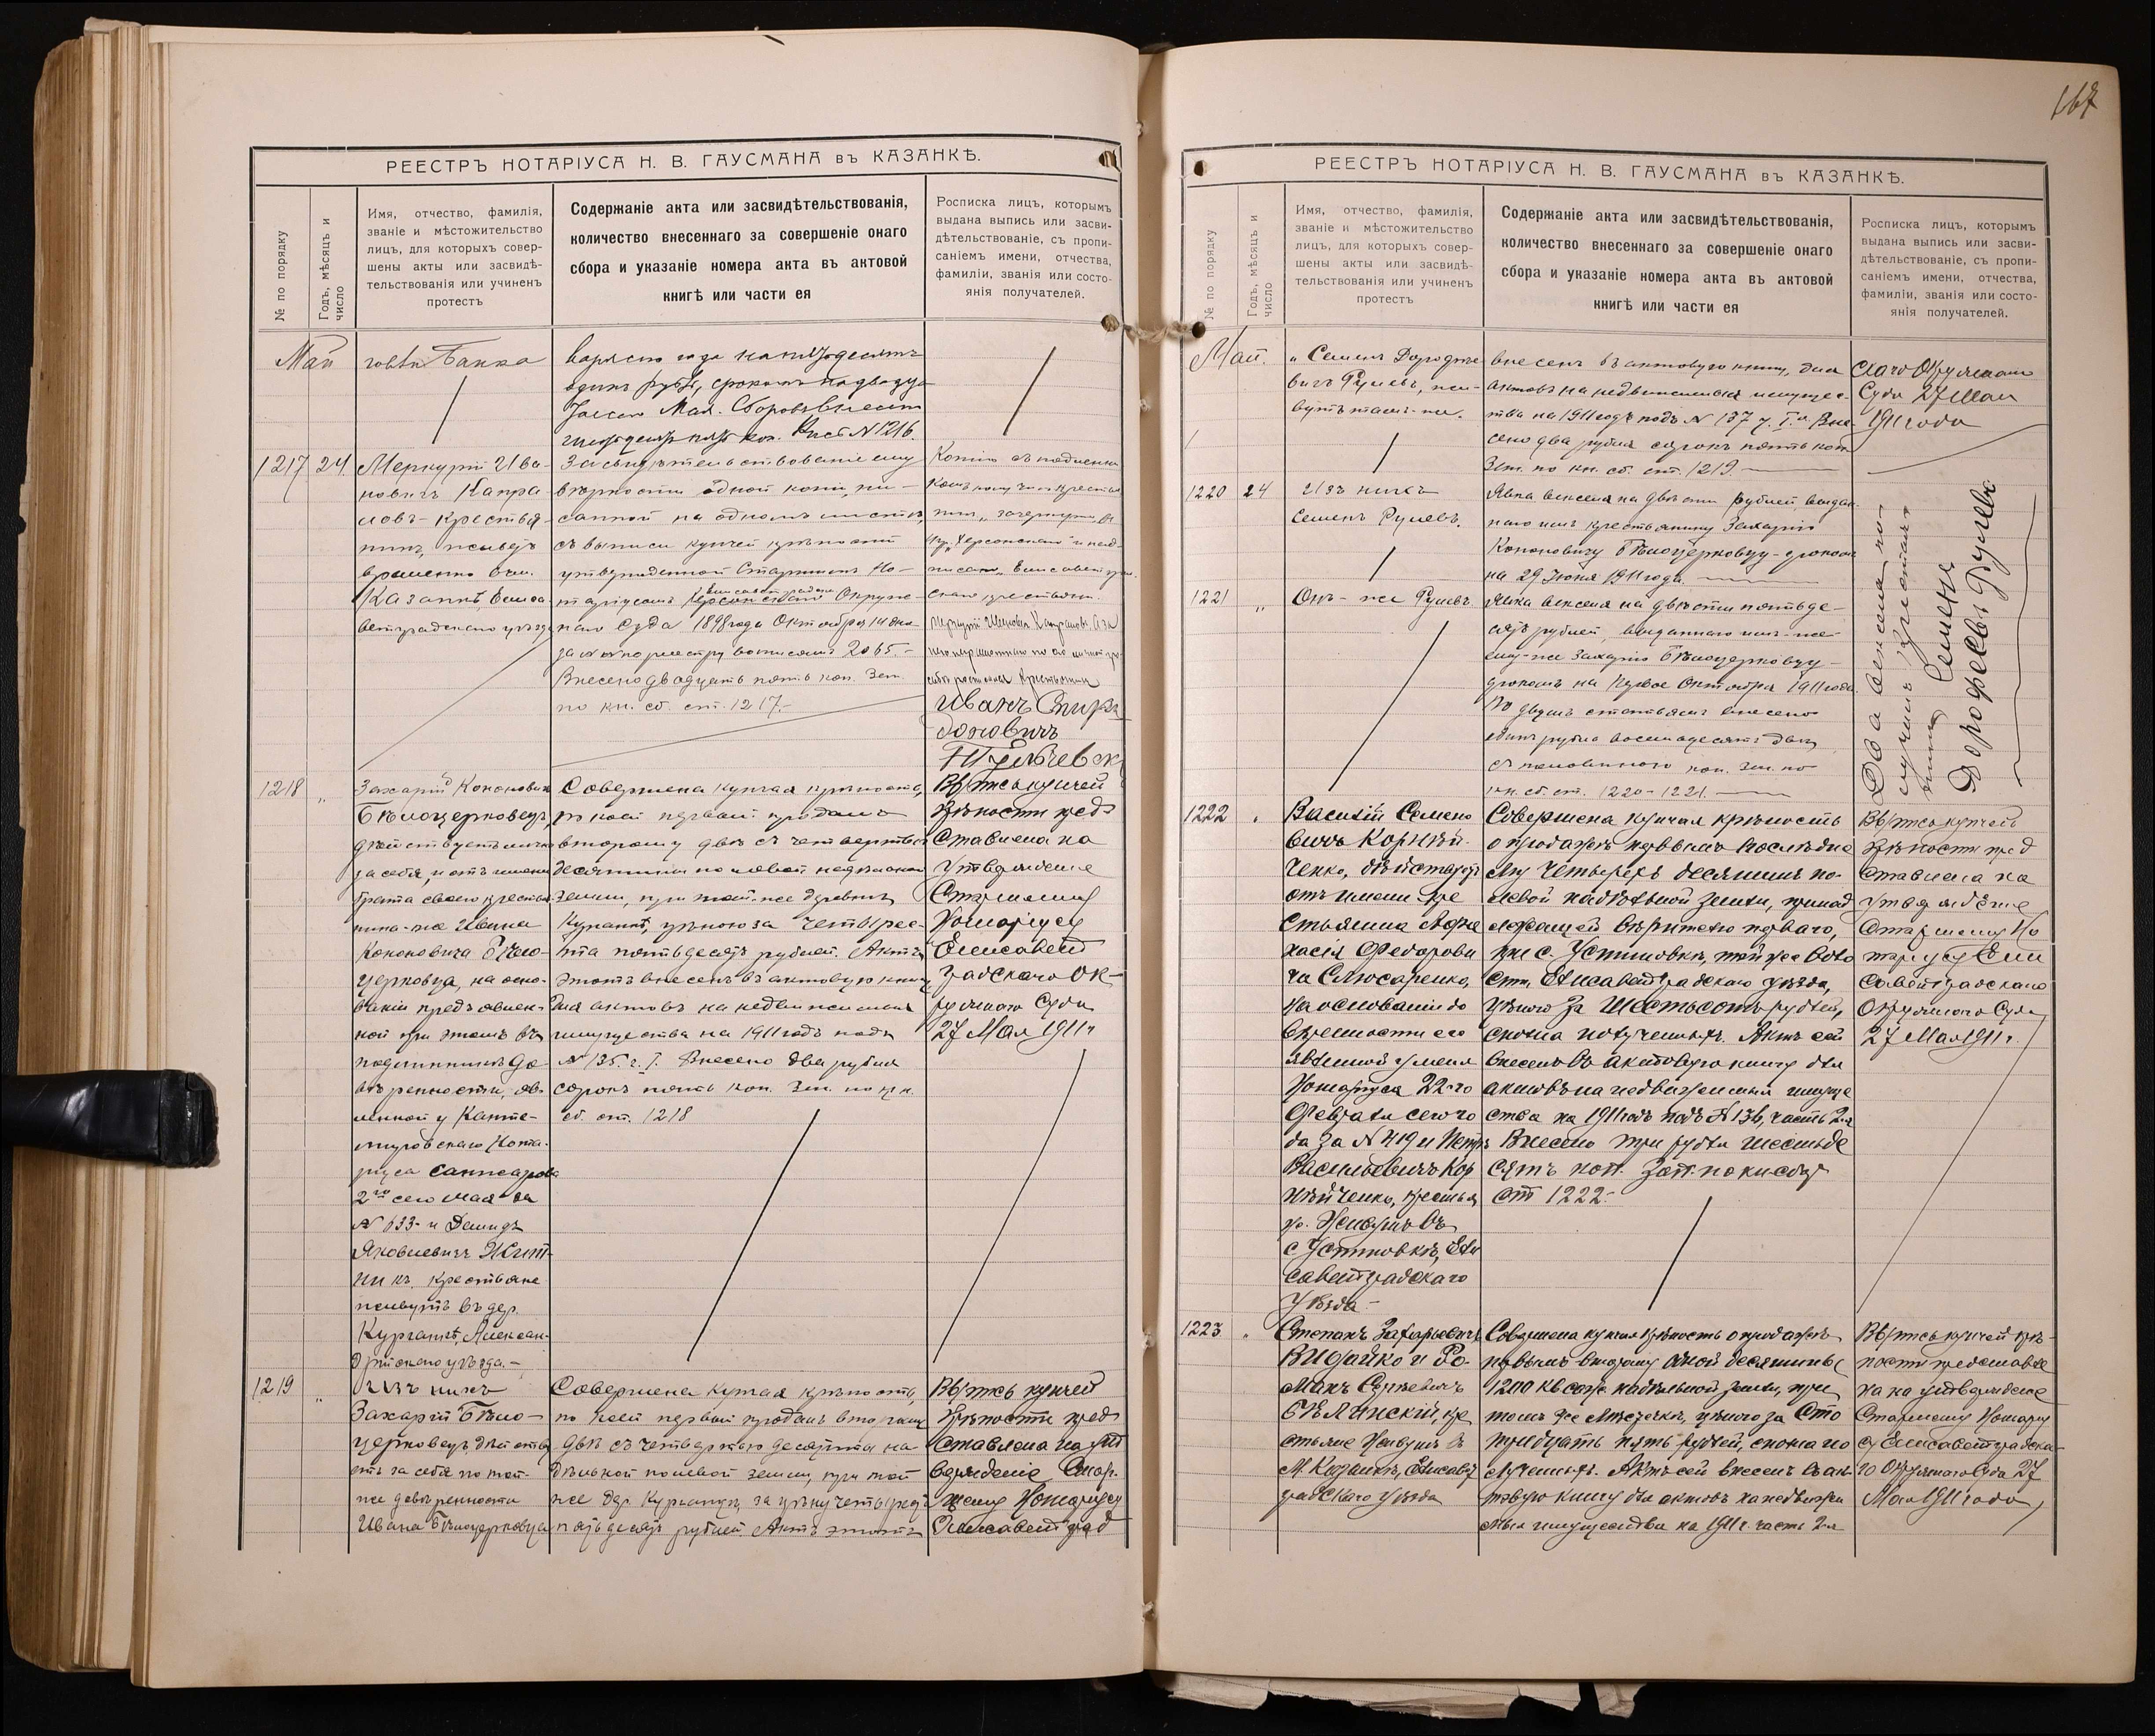 РЕЕСТРЪ НОТАРІУСА Н. В. ГАУСМАНА въ КАЗАНКѢ.
№ по порядку
Годъ, мѣсяцъ и
число
Имя, отчество, фамилія,
званіе и мѣстожительство
лицъ, для которыхъ совер-
шены акты или засвидѣ-
тельствованія или учиненъ
протестъ
Содержаніе акта или засвидѣтельствованія,
количество внесеннаго за совершеніе онаго
сбора и указаніе номера акта въ актовой
книгѣ или части ея
Росписка лицъ, которымъ
выдана выпись или засви-
дѣтельствованіе, съ пропи-
саніемъ имени, отчества,
фамиліи, званія или состо-
янія получателей.
Май
Банка
года на пятьдесятъ
одинъ рубль, срокомъ
Мая. Сборовъ
коп. № 1216.
1217 24
Меркурій Ива-
новичъ Капра-
ловъ - крестья-
нинъ, живетъ
временно въ м.
Казанкѣ, Елиса-
ветградскаго уѣзда
Засвидѣтельствованіе ему
вѣрности одной копіи, пи-
санной на одномъ листѣ,
съ выписи купчей крѣпости
утвержденной Старшимъ Но-
таріусомъ Херсонскаго Окруж-
наго Суда 1898 года Октября 14 дня
за по реестру 2065.-
Внесено двадцать пять коп. Зап.
по кн. сб. ст. 1217.-
Копію съ
Иванъ Спири-
доновичъ
1218 „
Захарій Кононовичъ
Бѣлоцерковецъ,
дѣйствуетъ лично
за себя, и отъ имени
брата своего крестья-
нина-же Ивана
Кононовича Бѣло-
церковца, на осно-
ваніи предъявлен-
ной при этомъ въ
подлинникѣ до-
вѣренности, яв-
ленной у Канте-
мировскаго Нота-
ріуса
2го сего мая за
№ 633 - и Демидъ
Яковлевичъ Жит-
никъ, крестьяне
живутъ въ дер.
Александ-
рійскаго уѣзда.-
Совершена купчая крѣпость,
по коей первый продалъ
второму двѣ съ четвертью
десятины полевой надѣльной
земли, при той-же деревнѣ
цѣною за четырес-
та пятьдесятъ рублей. Актъ
этотъ внесенъ въ актовую книгу
для актовъ на недвижимыя
имущества на 1911 годъ подъ
№ 135. ч. I. Внесено два рубля
сорокъ пять коп. Зап. по кн.
сб. ст. 1218
Выпись купчей
крѣпости пред-
ставлена на
утвержденіе
Старшему
Нотаріусу
Елисавет-
градскаго Ок-
ружнаго Суда
27 Мая 1911 г
1219 „
Изъ нихъ
Захарій Бѣло-
церковецъ, дѣйству-
етъ за себя по той-
же довѣренности
Ивана Бѣлоцерковца
Совершена купчая крѣпость,
по коей первый продалъ второму
двѣ съ четвертью десятины на-
дѣльной полевой земли, при той
же дер. за цѣну четыреста
пятьдесятъ рублей. Актъ этотъ
Выпись купчей
крѣпости пред-
ставлена на ут-
вержденіе Стар-
шему Нотаріусу
Елисаветград
167
РЕЕСТРЪ НОТАРІУСА Н. В. ГАУСМАНА въ КАЗАНКѢ.
№ по порядку
Годъ, мѣсяцъ и
число
Имя, отчество, фамилія,
званіе и мѣстожительство
лицъ, для которыхъ совер-
шены акты или засвидѣ-
тельствованія или учиненъ
протестъ
Содержаніе акта или засвидѣтельствованія,
количество внесеннаго за совершеніе онаго
сбора и указаніе номера акта въ актовой
книгѣ или части ея
Росписка лицъ, которымъ
выдана выпись или засви-
дѣтельствованіе, съ пропи-
саніемъ имени, отчества,
фамиліи, званія или состо-
янія получателей.
Май.
„ Семенъ Дорофѣе-
вичъ Рулевъ, жи-
вутъ тамъ-же.
внесенъ въ актовую книгу, для
актовъ на недвижимыя имущес-
тва на 1911 годъ подъ № 137 ч. I.я Вне-
сено два рубля сорокъ пять коп.
Зап. по кн. сб. ст. 1219.
скаго Окружнаго
Суда 27 Мая
1911 года
1220 24
Изъ нихъ
Семенъ Рулевъ.
Явка векселя на двѣсти рублей, выдан-
наго имъ крестьянину Захарію
Кононовичу Бѣлоцерковцу - срокомъ
на 29 Іюня 1911 года.
1221 „
Онъ - же Рулевъ
Явка векселя на двѣсти пятьде-
сятъ рублей, выданнаго имъ-же
ему-же Захарію Бѣлоцерковцу -
срокомъ на Первое Октября 1911 года.
По двумъ статьямъ внесено
одинъ рубль восемьдесятъ два
съ половиною коп. Зап. по
кн. сб. ст. 1220-1221.
Два векселя по-
лучилъ крестья-
нинъ Семенъ
Дорофеевъ Рулевъ
1222 „
Василій Семено-
вичъ Корнѣй-
ченко, дѣйствуетъ
отъ имени кре-
стьянина Афа-
насія Федорови-
ча Слюсаренко,
на основаніи до-
вѣренности его
явленной у меня
Нотаріуса 22-го
Февраля сего го-
да за № 419 и Петръ
Васильевичъ Кор-
нѣйченко, крестья-
не. Живутъ въ
с. Устиновкѣ, Ели-
саветградскаго
уѣзда.-
Совершена купчая крѣпость
о продажѣ первымъ послѣдне-
му четырехъ десятинъ по-
левой надѣльной земли, принад-
лежащей вѣрителю перваго,
при с. Устиновкѣ, той же воло-
сти, Елисаветградскаго уѣзда,
цѣною за Шестьсотъ рублей,
сполна полученныхъ. Актъ сей
внесенъ въ актовую книгу для
актовъ на недвижимыя имуще-
ства на 1911 годъ подъ № 136, часть 2-я
Внесено три рубля шестьде-
сятъ коп. Зап. по кн. сб.
ст 1222.-
Выпись купчей
крѣпости пред-
ставлена на
утвержденіе
Старшему Но-
таріусу Ели-
саветградскаго
Окружнаго Суда
27 Мая 1911 г.
1223 „
Степанъ Захарьевичъ
Видайко и Ро-
манъ Сергѣевичъ
Бѣлинскій, кре-
стьяне живутъ въ
м. Казанкѣ, Елисавет-
градскаго уѣзда
Совершена купчая крѣпость о продажѣ
первымъ второму одной десятины
1200 кв саж. надѣльной земли, при
томъ же мѣстечкѣ, цѣною за Сто
тридцать пять рублей, сполна по-
лученныхъ. Актъ сей внесенъ въ ак-
товую книгу для актовъ на недвижи-
мыя имущества на 1911 г. часть 2-я
Выпись купчей крѣ-
пости представле-
на на утвержденіе
Старшему Нотаріу-
су Елисаветградска-
го Окружнаго Суда 27
Мая 1911 года